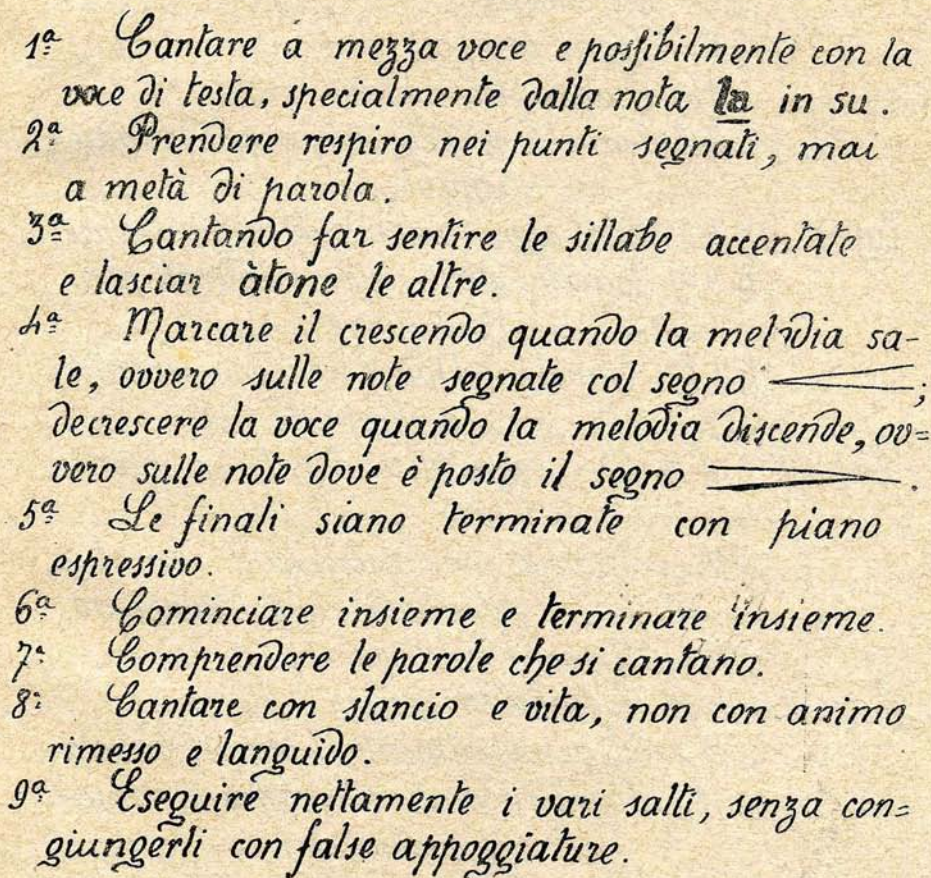 1ª Cantare a mezza voce e possibilmente con la
voce di testa, specialmente dalla nota la in su.
2ª Prendere respiro nei punti segnati, mai
a metà di parola.
3ª Cantando far sentire le sillabe accentate
e lasciar àtone le altre.
4ª Marcare il crescendo quando la melodia sa-
le, ovvero sulle note segnate col segno <;
decrescere la voce quando la melodia discende, ov=
vero sulle note dove è posto il segno >.
5ª Le finali siano terminate con piano
espressivo.
6ª Cominciare insieme e terminare insieme.
7ª Comprendere le parole che si cantano.
8ª Cantare con slancio e vita, non con animo
rimesso e languido.
9ª Eseguire nettamente i vari salti, senza con=
giungerli con false appoggiature.